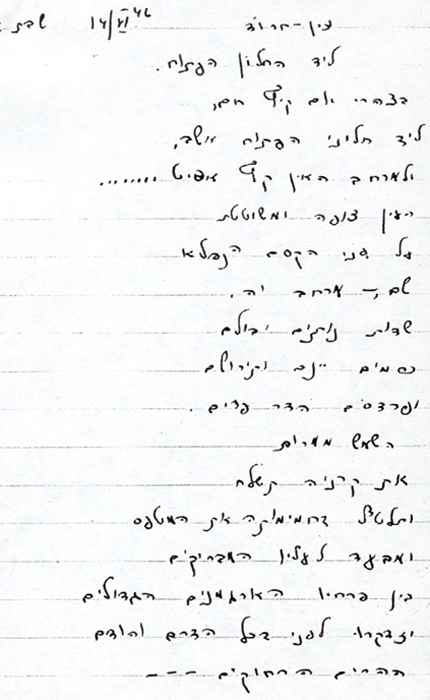 עין-חרוד 14/VI 46 שבת
ליד החלון הפתוח.
בצהרי יום קיץ חם,
ליד חלוני הפתוח אשב,
ולמרחב האין קץ אביט ........
העין צופה ומשוטטת
על פני הקסם הנפלא
שם, – מרחב יה.
שדות נותנים יבולם
כרמים יינם ותירושם
ופרדסים הדר פרים.
השמש ממרום
את קרניה תשלח
ותלטף בחמימותה את
ומבעד לעליו המבריקים
בין פרחיו הארגמנים הגדולים
יזדקרו לפני בכל הדרם והודם
ההרים הרחוקים ---